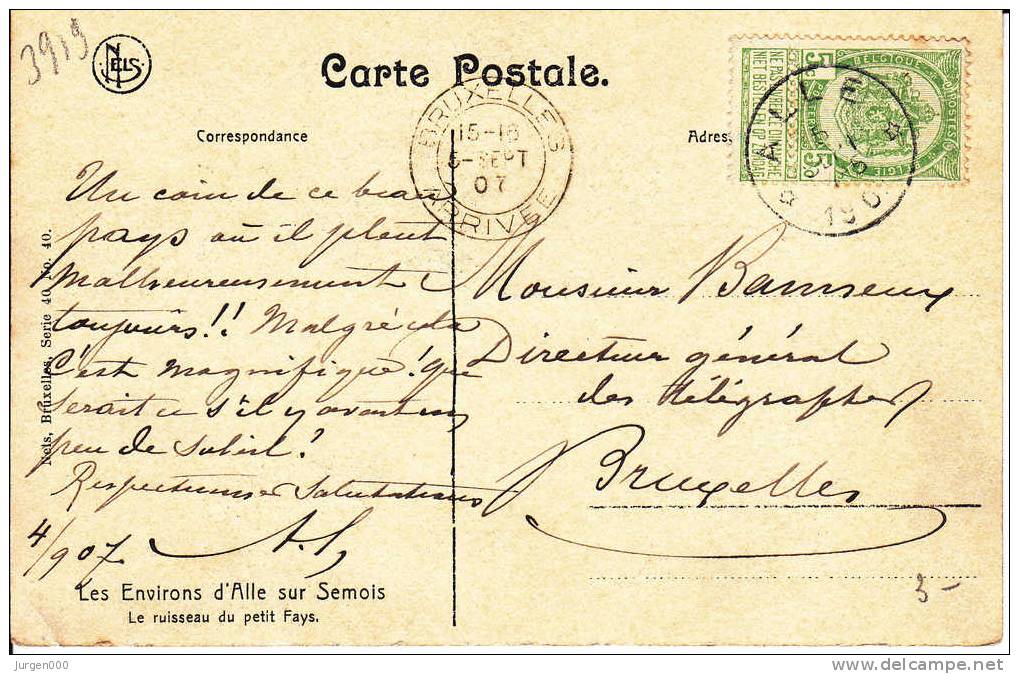 3919
NELS
Carte Postale.
Correspondance
Adres
BRUXELLES
15-16
5-SEPT
07
ARRIVÉE
BELGIQUE
5
5
ALLE
190
Un coin de ce beau
pays où il pleut
malheureusement
toujours!! Malgré cela
C'est magnifique! que
serait ce s'il y avait un
peu de soleil?
Respectueuses Salutations
4/907.
Monsieur
Directeur général
des télégraphes
Bruxelles
Nels, Bruxelles, Serie 40 No. 40.
Les Environs d'Alle sur Semois
Le ruisseau du petit Fays.
3-
Jurgen000
delcampe.net